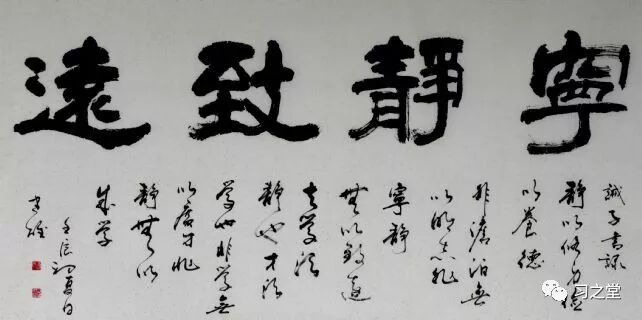 寧靜致遠
誡子書錄
靜以修身儉
以養德
非澹泊無
以明志非
寧靜
無以致遠
夫學須
靜也才須
學也非學無
以廣才非
靜無以
成學
壬辰初夏日
习之堂